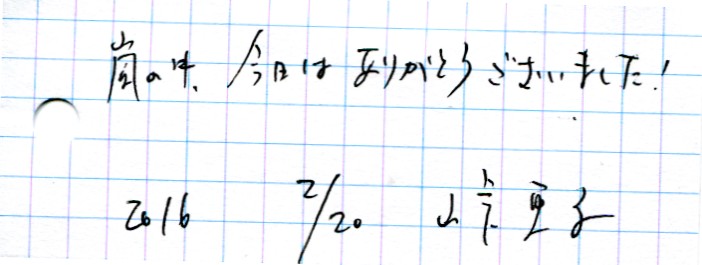 嵐の中、今日は ありがとうございました!
2016 2/20 山